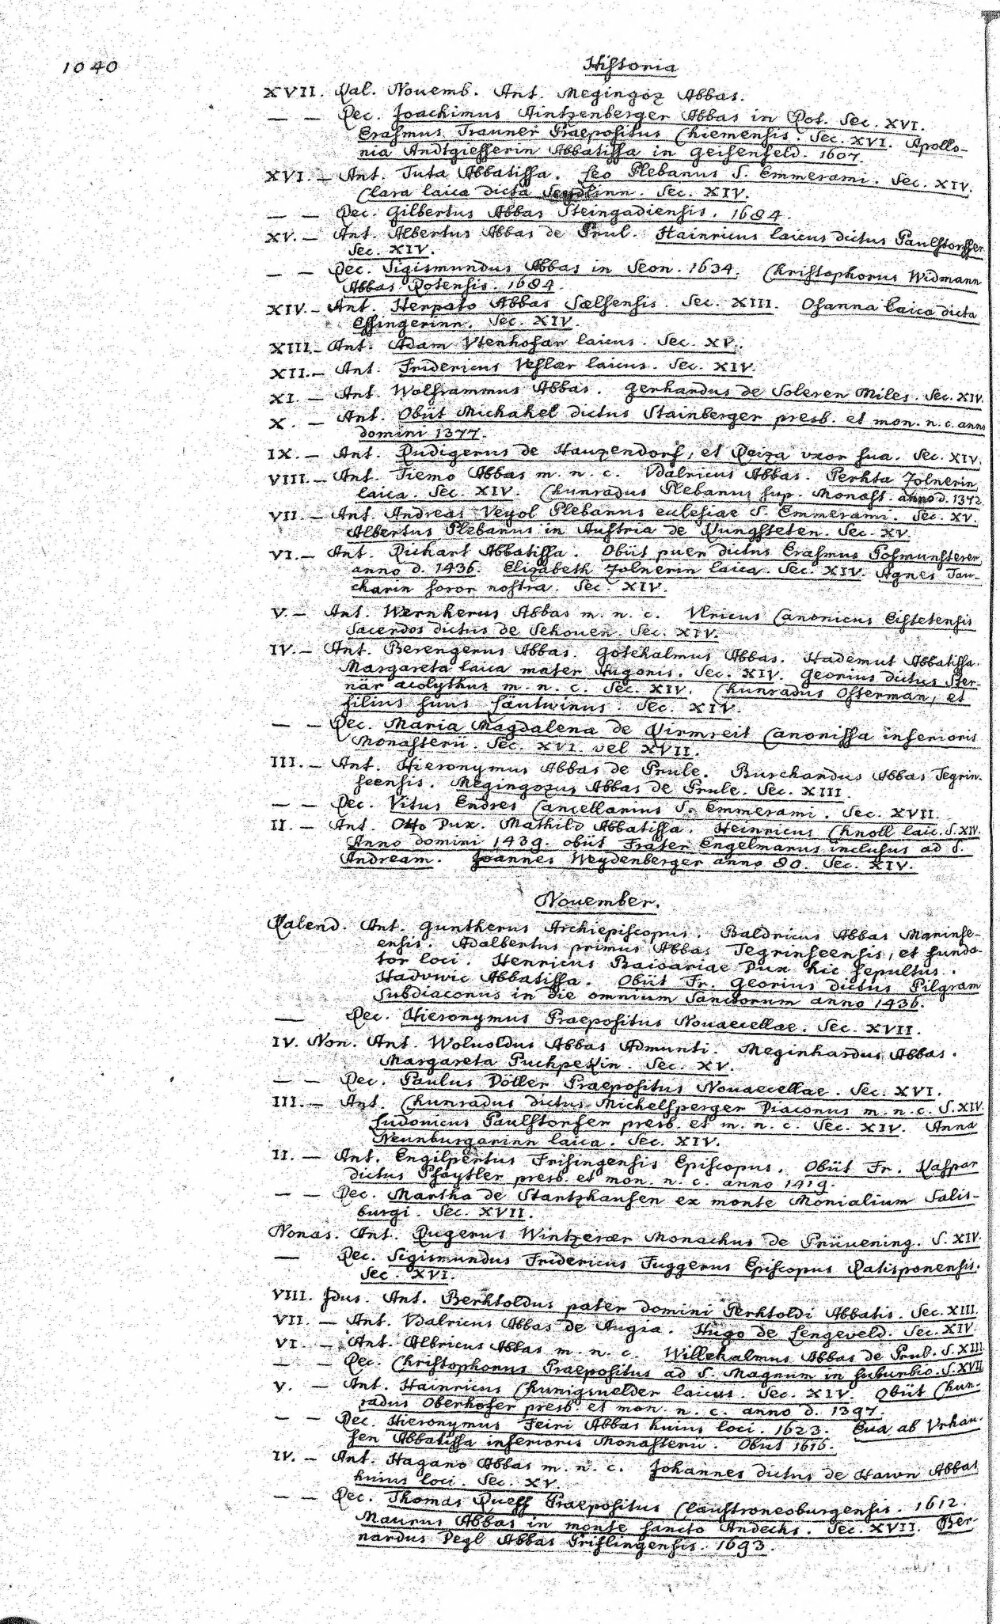 1040
Historia
XVII. Kal. Novemb. Ant. Megingoz Abbas.
— — Rec. Joachimus Aintzenberger Abbas in Rot. Sec. XVI.
Erasmus Trauner Praepositus Chiemensis. Sec. XVI. Apollo-
nia Andtgiesserin Abbatissa in Geisenfeld. 1607.
XVI. — Ant. Tuta Abbatissa. Leo Plebanus S. Emmerami. Sec. XIV.
Clara laica dicta Seydlinn. Sec. XIV.
— — Rec. Gilbertus Abbas Steingadiensis. 1684.
XV. — Ant. Albertus Abbas de Prul. Hainricus laicus dictus Paulstorffer
Sec. XIV.
— — Rec. Sigismundus Abbas in Seon. 1634. Christophorus Widmann
Abbas Rotensis. 1684.
XIV. — Ant. Herpato Abbas Sælsensis. Sec. XIII. Osanna laica dicta
Essingerinn. Sec. XIV.
XIII. — Ant. Adam Utenhofar laicus. Sec. XV.
XII. — Ant. Fridericus Veslær laicus. Sec. XIV.
XI. — Ant. Wolframmus Abbas. Gerhardus de Soleren Miles. Sec. XIV.
X. — Ant. Obiit Michahel dictus Stainberger presb. et mon. n. c. anno
domini 1377.
IX. — Ant. Rudigerus de Hauzendorf, et Reiza uxor sua. Sec. XIV.
VIII. — Ant. Tiemo Abbas m. n. c. Vdalricus Abbas. Perhta Zolnerin
laica. Sec. XIV. Chunradus Plebanus sup. Monast. anno d. 1372
VII. — Ant. Andreas Veyol Plebanus eclesiae S. Emmerami. Sec. XV.
Albertus Plebanus in Austria de Rungsteten. Sec. XV.
VI. — Ant. Richart Abbatissa. Obiit puer dictus Erasmus Posmunsterer
anno d. 1436. Elizabeth Zolnerin laica. Sec. XIV. Agnes Tau-
charin soror nostra. Sec. XIV.
V. — Ant. Wernherus Abbas m. n. c. Vlricus Canonicus Eistetensis
Sacerdos dictus de Sehouen. Sec. XIV.
IV. — Ant. Berengerus Abbas. Gotehalmus Abbas. Hademut Abbatissa.
Margareta laica mater Hugonis. Sec. XIV. Georius dictus Ster-
när acolythus m. n. c. Sec. XIV. Chunradus Osterman, et
filius suus Läutwinus. Sec. XIV.
— — Rec. Maria Magdalena de Virmreit Canonissa inferioris
Monasterii. Sec. XVI. vel XVII.
III. — Ant. Hieronymus Abbas de Prule. Burchardus Abbas Tegrin-
seensis. Megingozus Abbas de Prule. Sec. XIII.
— — Rec. Vitus Endres Cancellarius S. Emmerami. Sec. XVII.
II. — Ant. Otto Dux. Mathild Abbatissa. Heinricus Chnoll laic. S. XIV.
Anno domini 1439. obiit Frater Engelmarus inclusus ad S.
Andream. Joannes Weydenberger anno 80. Sec. XIV.
November.
Kalend. Ant. Guntherus Archiepiscopus. Baldricus Abbas Maninse-
ensis. Adalbertus primus Abbas Tegrinseensis, et funda-
tor loci. Henricus Baioariae Dux hic sepultus.
Hadvwic Abbatissa. Obiit Fr. Georius dictus Pilgram
Subdiaconus in die omnium Sanctorum anno 1436.
— Rec. Hieronymus Praepositus Novaecellae. Sec. XVII.
IV. Non. Ant. Woluoldus Abbas Admunti. Meginhardus Abbas.
Margareta Puchpekin. Sec. XV.
— — Rec. Paulus Döller Praepositus Novaecellae. Sec. XVI.
III. — Ant. Chunradus dictus Michelsperger Diaconus m. n. c. S. XIV
Ludovicus Paulstorfer presb. et m. n. c. Sec. XIV. Anna
Neunburgarinn laica. Sec. XIV.
II. — Ant. Engilpertus Frisingensis Episcopus. Obiit Fr. Kaspar
dictus Pfäytler presb. et mon. n. c. anno 1419.
— — Rec. Martha de Stantzhausen ex monte Monialium Salis-
burgi. Sec. XVII.
Nonas. Ant. Rugerus Wintzerær Monachus de Prüuening. S. XIV.
— Rec. Sigismundus Fridericus Fuggerus Episcopus Ratisponensis.
Sec. XVI.
VIII. Idus. Ant. Berhtoldus pater domini Perhtoldi Abbatis. Sec. XIII.
VII. — Ant. Vdalricus Abbas de Augia. Hugo de Lengeveld. Sec. XIV
VI. — Ant. Albricus Abbas m. n. c. Willehalmus Abbas de Prul. S. XIII
— — Rec. Christophorus Praepositus ad S. Magnum in suburbio. S. XVII
V. — Ant. Hainricus Chunigsuelder laicus. Sec. XIV. Obiit Chun-
radus Oberhofer presb. et mon. n. c. anno d. 1397.
— — Rec. Hieronymus Feiri Abbas huius loci. 1623. Eua ab Vrhau-
sen Abbatissa inferioris Monasterii. Obiit 1616.
IV. — Ant. Hagano Abbas m. n. c. Johannes dictus de Hawn Abbas
huius loci. Sec. XV.
— — Rec. Thomas Rueff Praepositus Claustroneoburgensis. 1612.
Maurus Abbas in monte sancto Andechs. Sec. XVII. Ber-
nardus Degl Abbas Priflingensis. 1693.